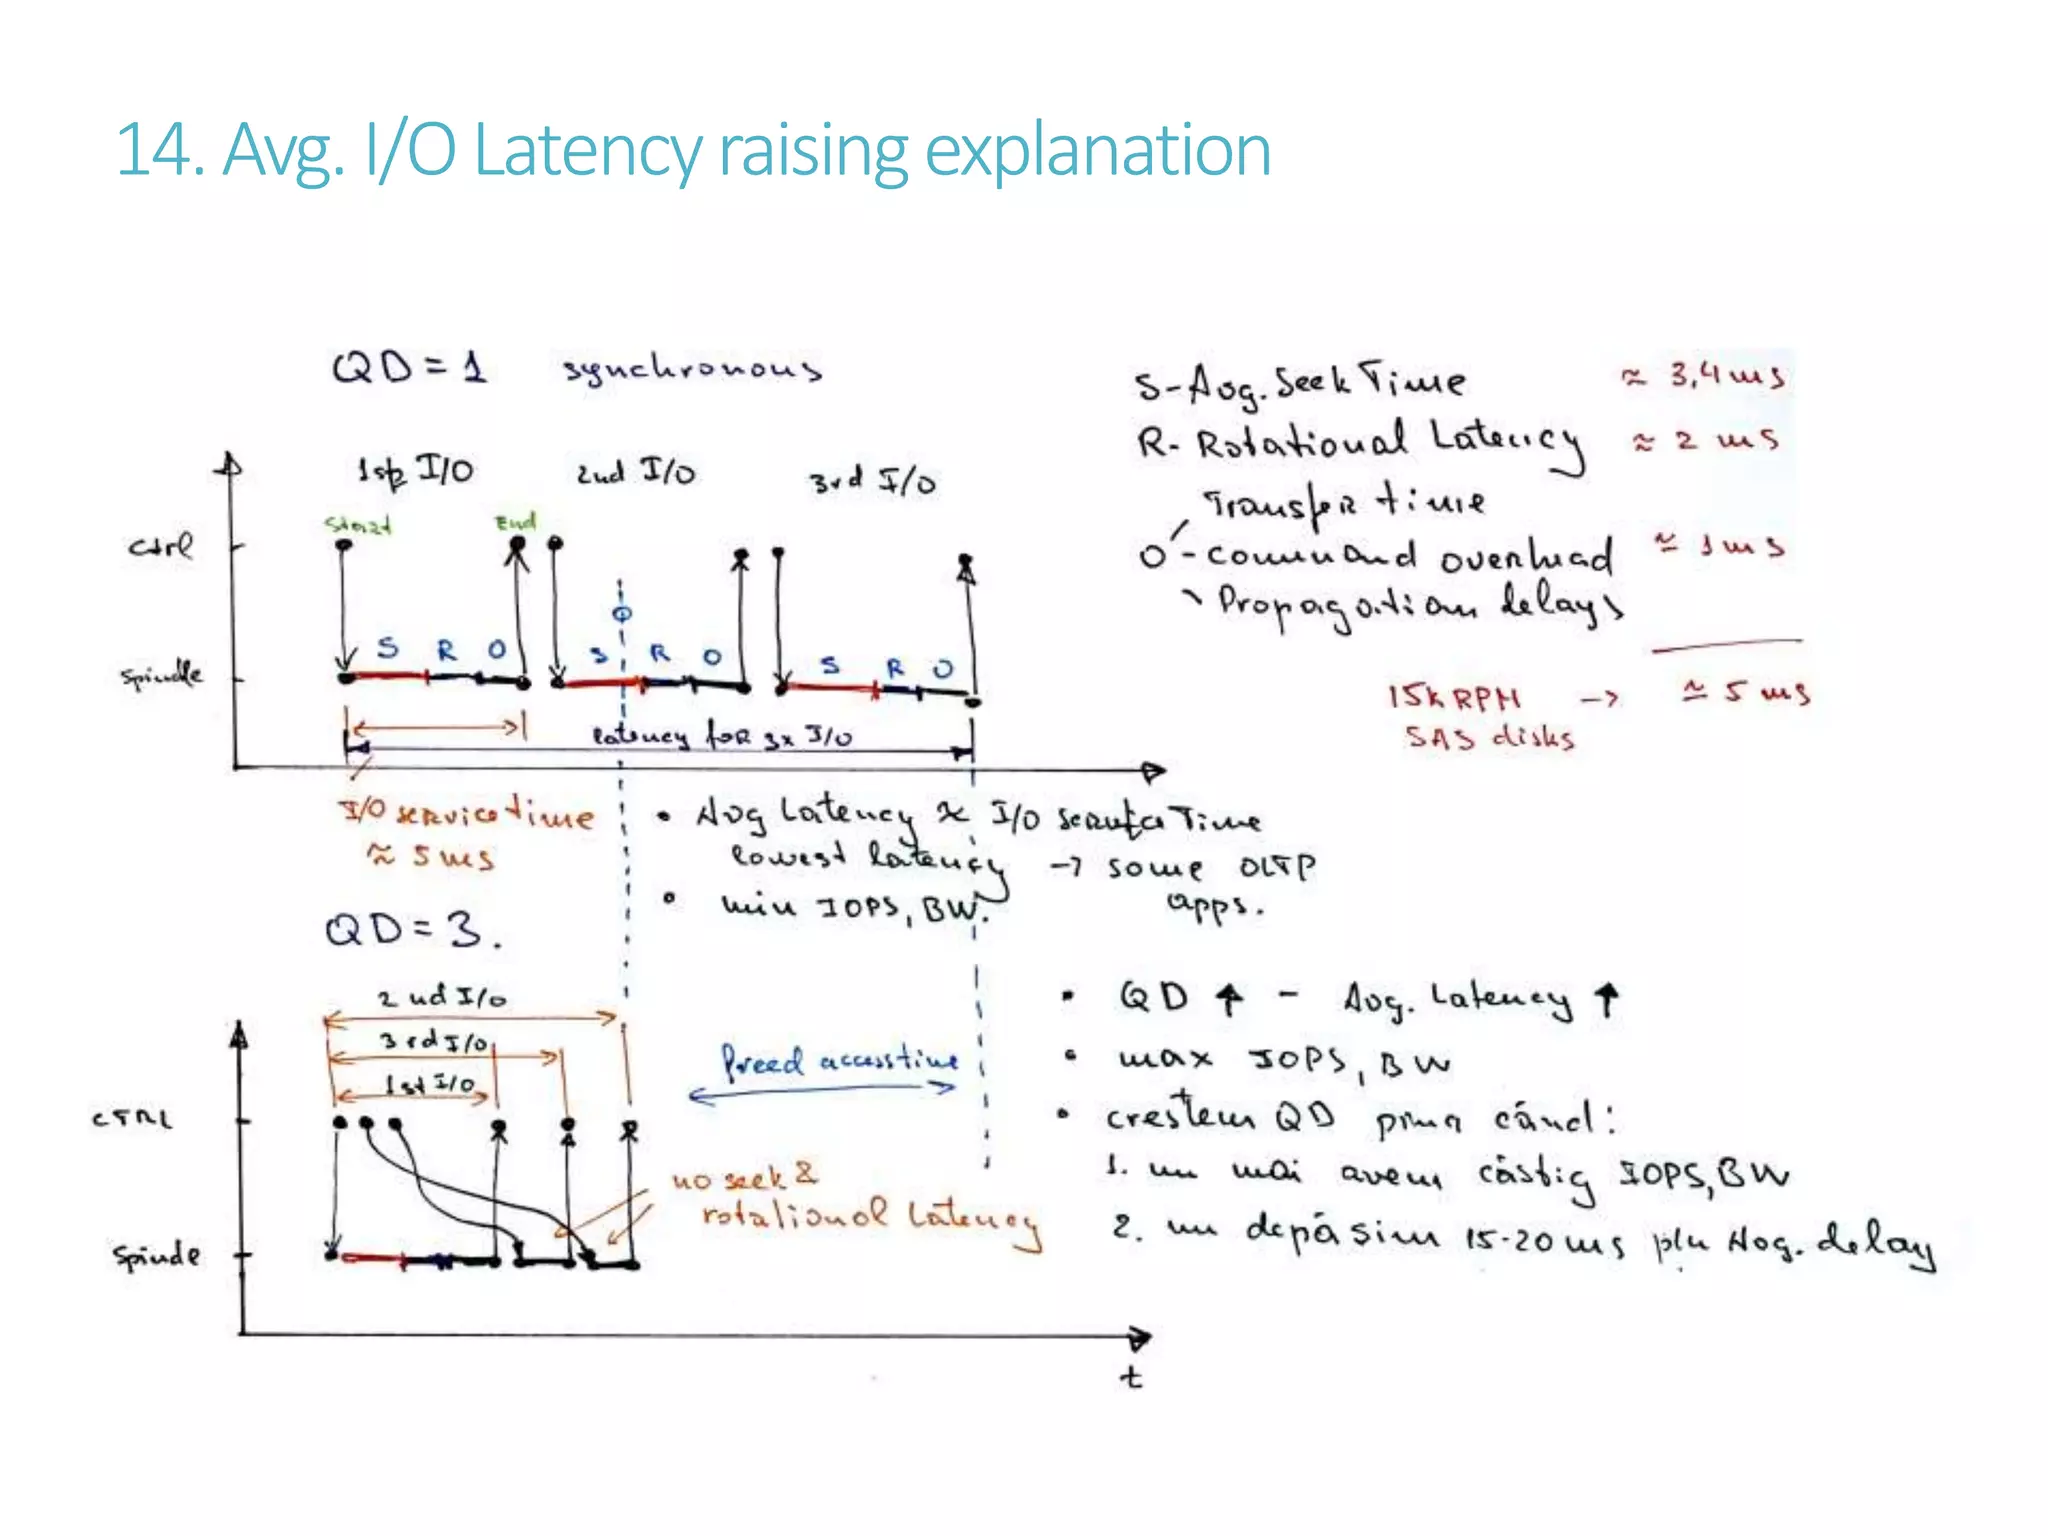 14. Avg. I/O Latency raising explanation
QD = 1 synchronous
1st I/O 2nd I/O 3rd I/O
Start End
Ctrl
S R O S R O S R O
Spindle
latency for 3x I/O
I/O service time
≈ 5 ms
S - Avg. Seek Time ≈ 3,4 ms
R - Rotational Latency ≈ 2 ms
Transfer time
O - command overhead ≈ 1 ms
Propagation delays
15k RPM → ≈ 5 ms
SAS disks
• Avg Latency ≈ I/O Service Time
lowest latency → some OLTP
apps.
• min IOPS, BW.
QD = 3.
2nd I/O
3rd I/O
1st I/O
CTRL
Spinde
freed access time
no seek &
rotational Latency
t
• QD ↑ - Avg. Latency ↑
• max IOPS, BW
• creștem QD până când:
1. nu mai avem câștig IOPS, BW
2. nu depăsim 15-20 ms ptu Avg. delay